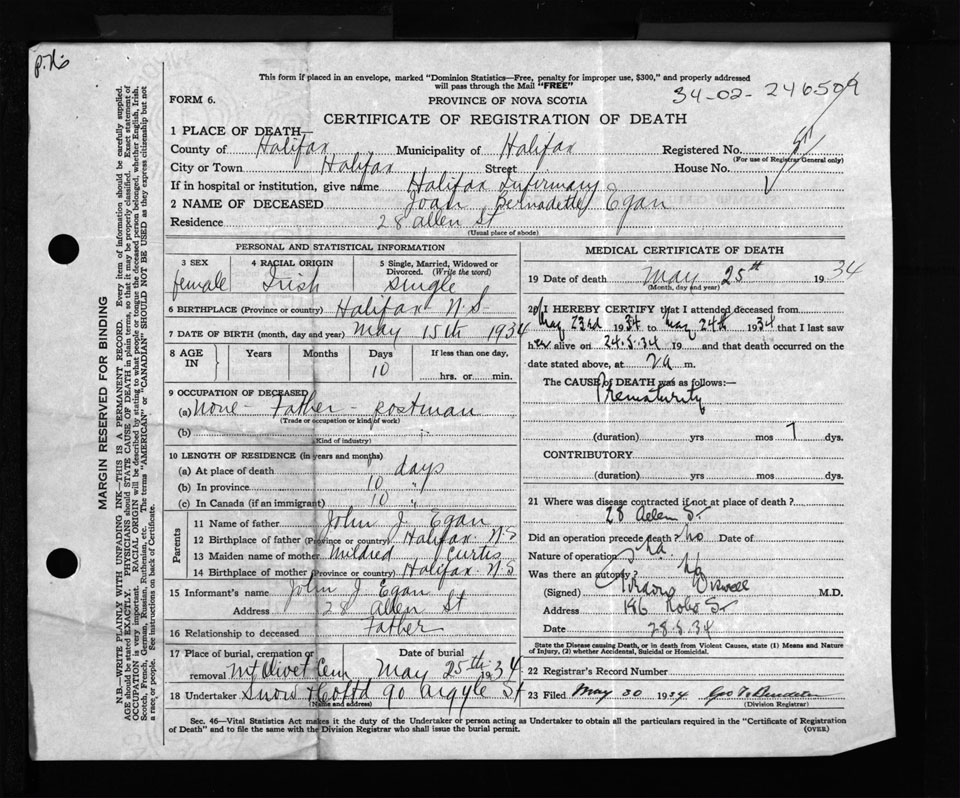 P.N.
This form if placed in an envelope, marked "Dominion Statistics—Free, penalty for improper use, $300," and properly addressed
will pass through the Mail "FREE"
FORM 6.
PROVINCE OF NOVA SCOTIA
34-02-246509
CERTIFICATE OF REGISTRATION OF DEATH
1 PLACE OF DEATH—
County of Halifax Municipality of Halifax Registered No.
(For use of Registrar General only)
City or Town Halifax Street House No.
If in hospital or institution, give name Halifax Infirmary
2 NAME OF DECEASED Joan Bernadette Egan
Residence 28 Allen St
(Usual place of abode)
PERSONAL AND STATISTICAL INFORMATION
3 SEX
female
4 RACIAL ORIGIN
Irish
5 Single, Married, Widowed or
Divorced. (Write the word)
Single
6 BIRTHPLACE (Province or country) Halifax N.S.
7 DATE OF BIRTH (month, day and year) May 15th 1934
8 AGE IN
Years
Months
Days
10
If less than one day,
hrs. or min.
9 OCCUPATION OF DECEASED
(a) None - Father - Postman
(Trade or occupation or kind of work)
(b)
(Kind of industry)
10 LENGTH OF RESIDENCE (in years and months)
(a) At place of death days
(b) In province 10 "
(c) In Canada (if an immigrant) 10 "
Parents
11 Name of father John J. Egan
12 Birthplace of father (Province or country) Halifax N.S
13 Maiden name of mother Mildred Curtis
14 Birthplace of mother (Province or country) Halifax N.S
15 Informant's name John J Egan
Address 28 Allen St
16 Relationship to deceased Father
17 Place of burial, cremation or
removal Mt Olivet Cem
Date of burial
May 25th 1934
18 Undertaker Snow & Co Ltd 90 Argyle St
(Name and address)
MEDICAL CERTIFICATE OF DEATH
19 Date of death May 25th 1934
(Month, day and year)
20 I HEREBY CERTIFY that I attended deceased from
May 23rd 1934 to May 24th 1934 that I last saw
her alive on 24.5.34 19 and that death occurred on the
date stated above, at 2 a m.
The CAUSE of DEATH was as follows:—
Prematurity
(duration) yrs mos 7 dys.
CONTRIBUTORY
(duration) yrs mos dys.
21 Where was disease contracted if not at place of death?
28 Allen St
Did an operation precede death? no Date of
Nature of operation
Was there an autopsy? No
(Signed) M.D.
Address 186 Robie St
Date 28.5.34
State the Disease causing Death, or in death from Violent Causes, state (1) Means and Nature
of Injury, (2) whether Accidental, Suicidal or Homicidal.
22 Registrar's Record Number
23 Filed May 30 1934
(Division Registrar)
Sec. 46—Vital Statistics Act makes it the duty of the Undertaker or person acting as Undertaker to obtain all the particulars required in the "Certificate of Registration
of Death" and to file the same with the Division Registrar who shall issue the burial permit.
(OVER)
MARGIN RESERVED FOR BINDING
N.B.—WRITE PLAINLY WITH UNFADING INK—THIS IS A PERMANENT RECORD. Every item of information should be carefully supplied.
AGE should be stated EXACTLY. PHYSICIANS should STATE CAUSE OF DEATH in plain terms, so that it may be properly classified. Exact statement of
OCCUPATION is very important. RACIAL ORIGIN will be described by stating to what people or tongue the deceased person belonged, whether English, Irish,
Scotch, French, German, Russian, Ruthenian, etc. The terms "AMERICAN" or "CANADIAN" SHOULD NOT BE USED as they express citizenship but not
a race or people. See instructions on back of Certificate.